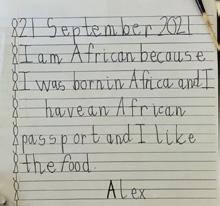 21 September 2021
I am African because
I was born in Africa and I
have an African
passport and I like
the food.
Alex